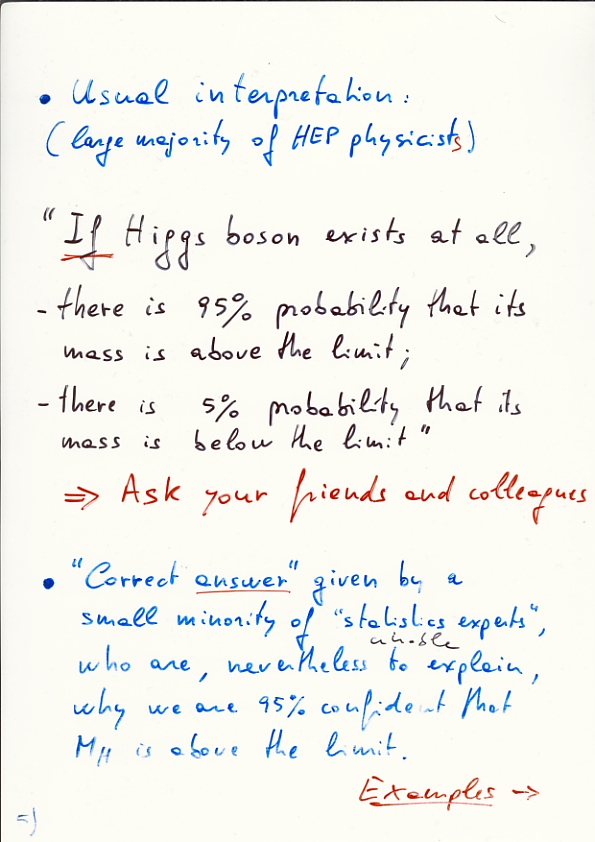 • Usual interpretation:
(large majority of HEP physicists)
"If Higgs boson exists at all,
- there is 95% probability that its
mass is above the limit;
- there is 5% probability that its
mass is below the limit"
⇒ Ask your friends and colleagues
• "Correct answer" given by a
small minority of "statistics experts",
unable
who are, nevertheless to explain,
why we are 95% confident that
MH is above the limit.
Examples →
=)